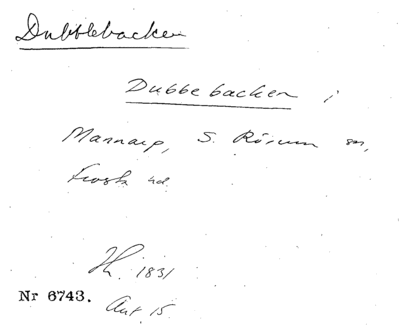 Dubblebacken
Dubbebacken i
Mannarp, S. Rörum sn,
Frosta hd.
1831
Nr 6743. Ant. 15